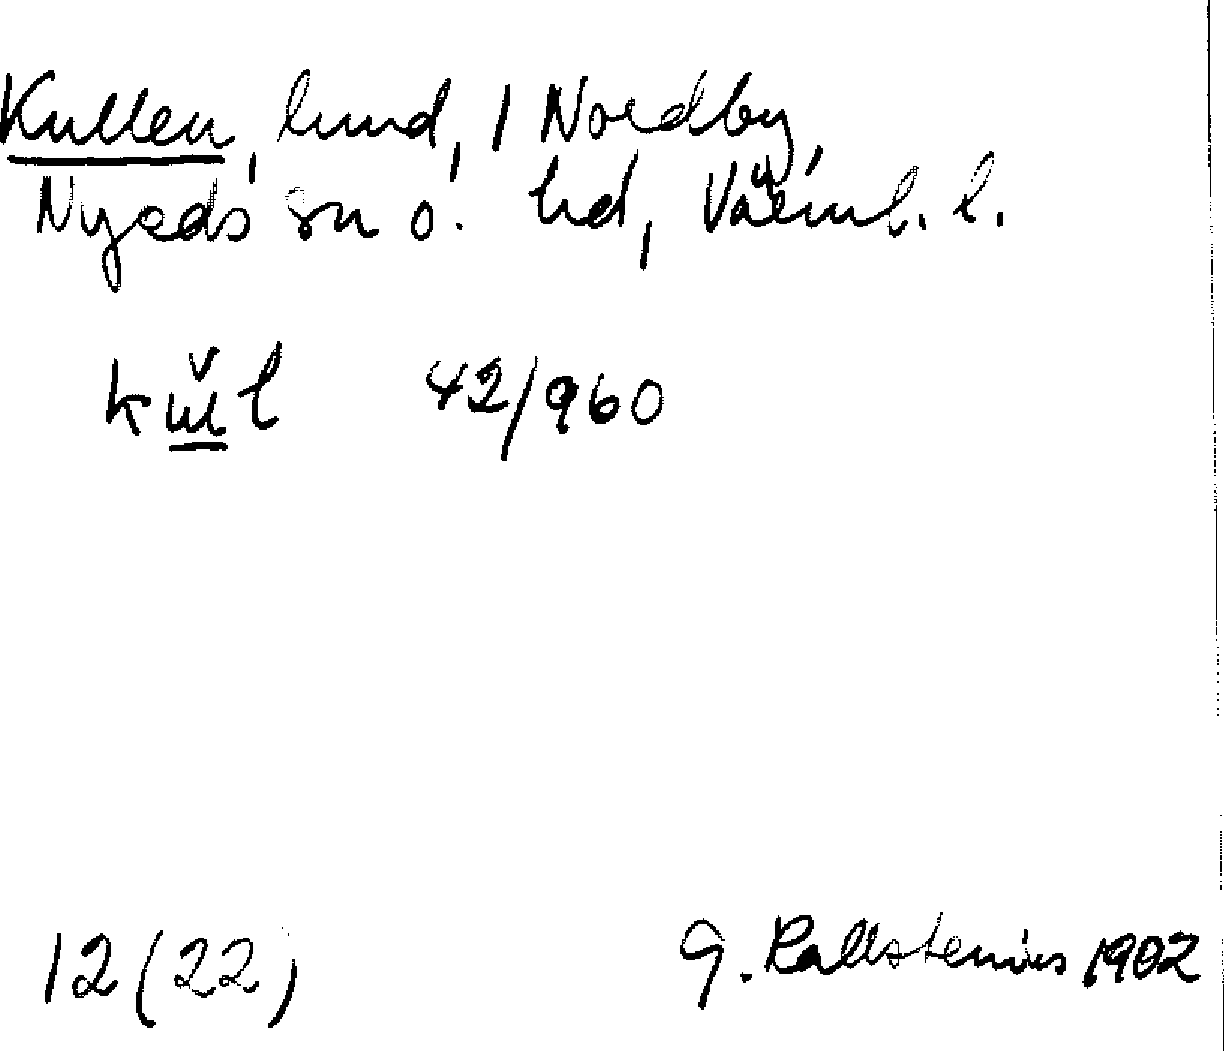 Kullen, lund, 1 Nordby,
Nyeds sn o. hd, Värml. l.
42/960
12 (22)
G. Kallstenius 1902